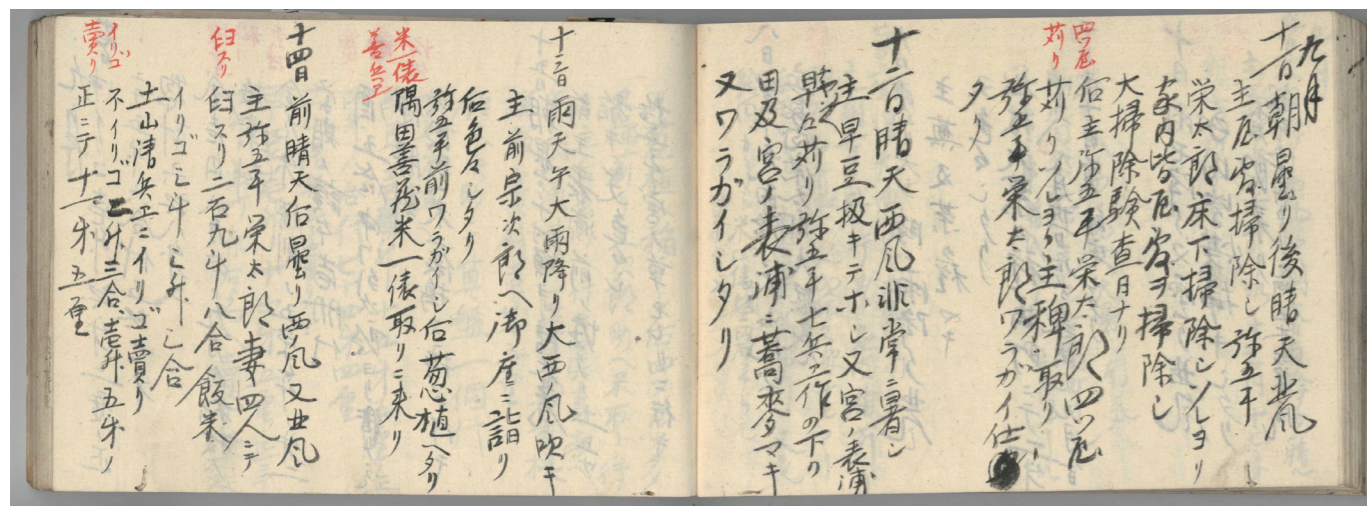 九月
十一日朝曇り後晴天北風
主屋皆掃除し弥五平
栄太郎床下掃除シソレヨリ
家内皆屋皆ヲ掃除し
大掃除験査日ナリ
四ッ屋
苅り
后主弥五平栄太郎四ッ屋
苅りソレヨリ主稗取り
弥五平栄太郎ワラガイ仕
タリ
十二日晴天西風非常ニ暑し
主早豆扱キテホし又宮ノ表浦
苅り弥五平七兵エ作の下り
田及宮ノ表浦ニ蕎麦マキ
又ワラガイシタリ
十三日雨天午大雨降り大西風吹キ
主前宗次郎へ御座ニ詣り
后色々シタリ
弥五平前ワラガイシ后葱植へタリ
米一俵
善兵エ
隅田善 米一俵取りニ来り
十四日前晴天后曇り西風又北風
主弥五平栄太郎妻四人ニテ
臼スリ
臼スリ二石九斗八合飯米
イリゴ三斗三升三合
イリゴ
売り
土山津兵エニイリゴ売り
不イリゴ二升三合、壱升五朱ノ
正ニテ十一朱五厘